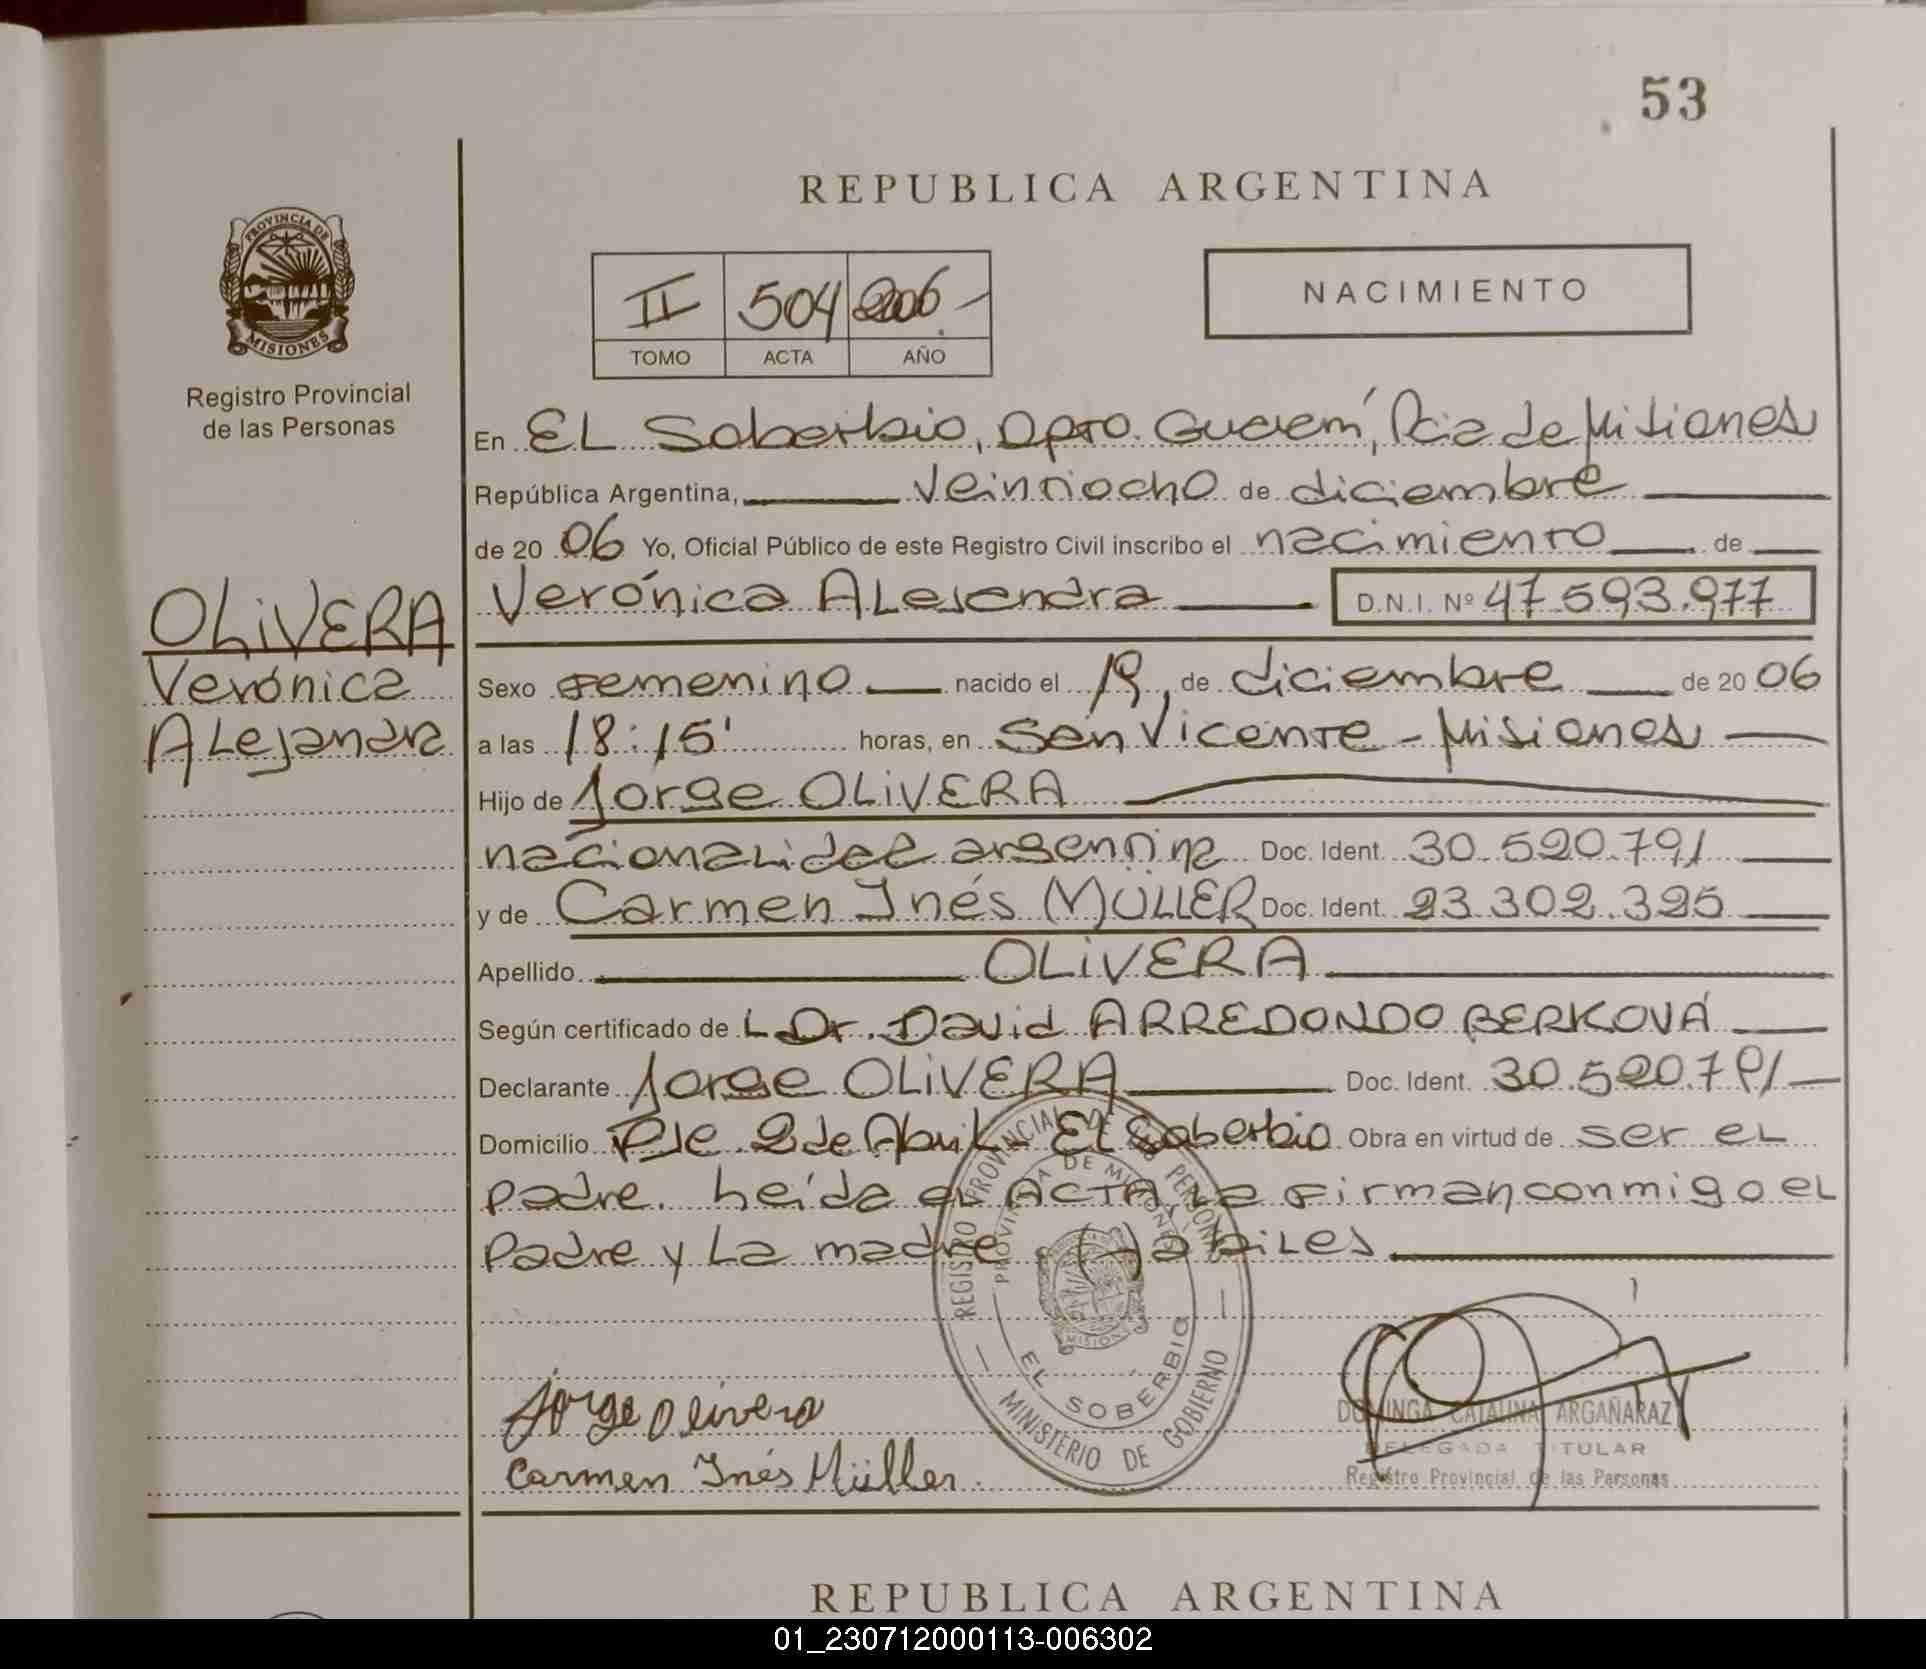 53
REPUBLICA ARGENTINA
PROVINCIA DE
MISIONES
Registro Provincial
de las Personas
II 504 2006.-
TOMO ACTA AÑO
NACIMIENTO
En EL Soberbio, Dpto. Guaraní, Pcia de Misiones
República Argentina, veintiocho de diciembre
de 20 06 Yo, Oficial Público de este Registro Civil inscribo el nacimiento de
Verónica ALejandra D.N.I. Nº 47 593.977
OLiVERA
Verónica
ALejandra
Sexo femenino nacido el 19, de diciembre de 20 06
a las 18:15' horas, en San Vicente - Misiones
Hijo de Jorge OLiVERA
nacionalidad argentina Doc. Ident. 30.520.791
y de Carmen Inés MÜLLER Doc. Ident. 23.302.325
Apellido OLiVERA
Según certificado de L Dr. David ARREDONDO BERKOVÁ
Declarante Jorge OLiVERA Doc. Ident. 30.520.791
Domicilio Pje. 2 de Abril - El Soberbio Obra en virtud de ser eL
padre. Leída eL ACTA, La firman conmigo eL
Padre y La madre. Hábiles
REGISTRO PROVINCIAL DE LAS PERSONAS
PROVINCIA DE MISIONES
MISIONES
EL SOBERBIO
MINISTERIO DE GOBIERNO
Jorge Olivera
Carmen Inés Müller
DOMINGA CATALINA ARGAÑARAZ
DELEGADA TITULAR
Registro Provincial de las Personas
REPUBLICA ARGENTINA
01_230712000113-006302